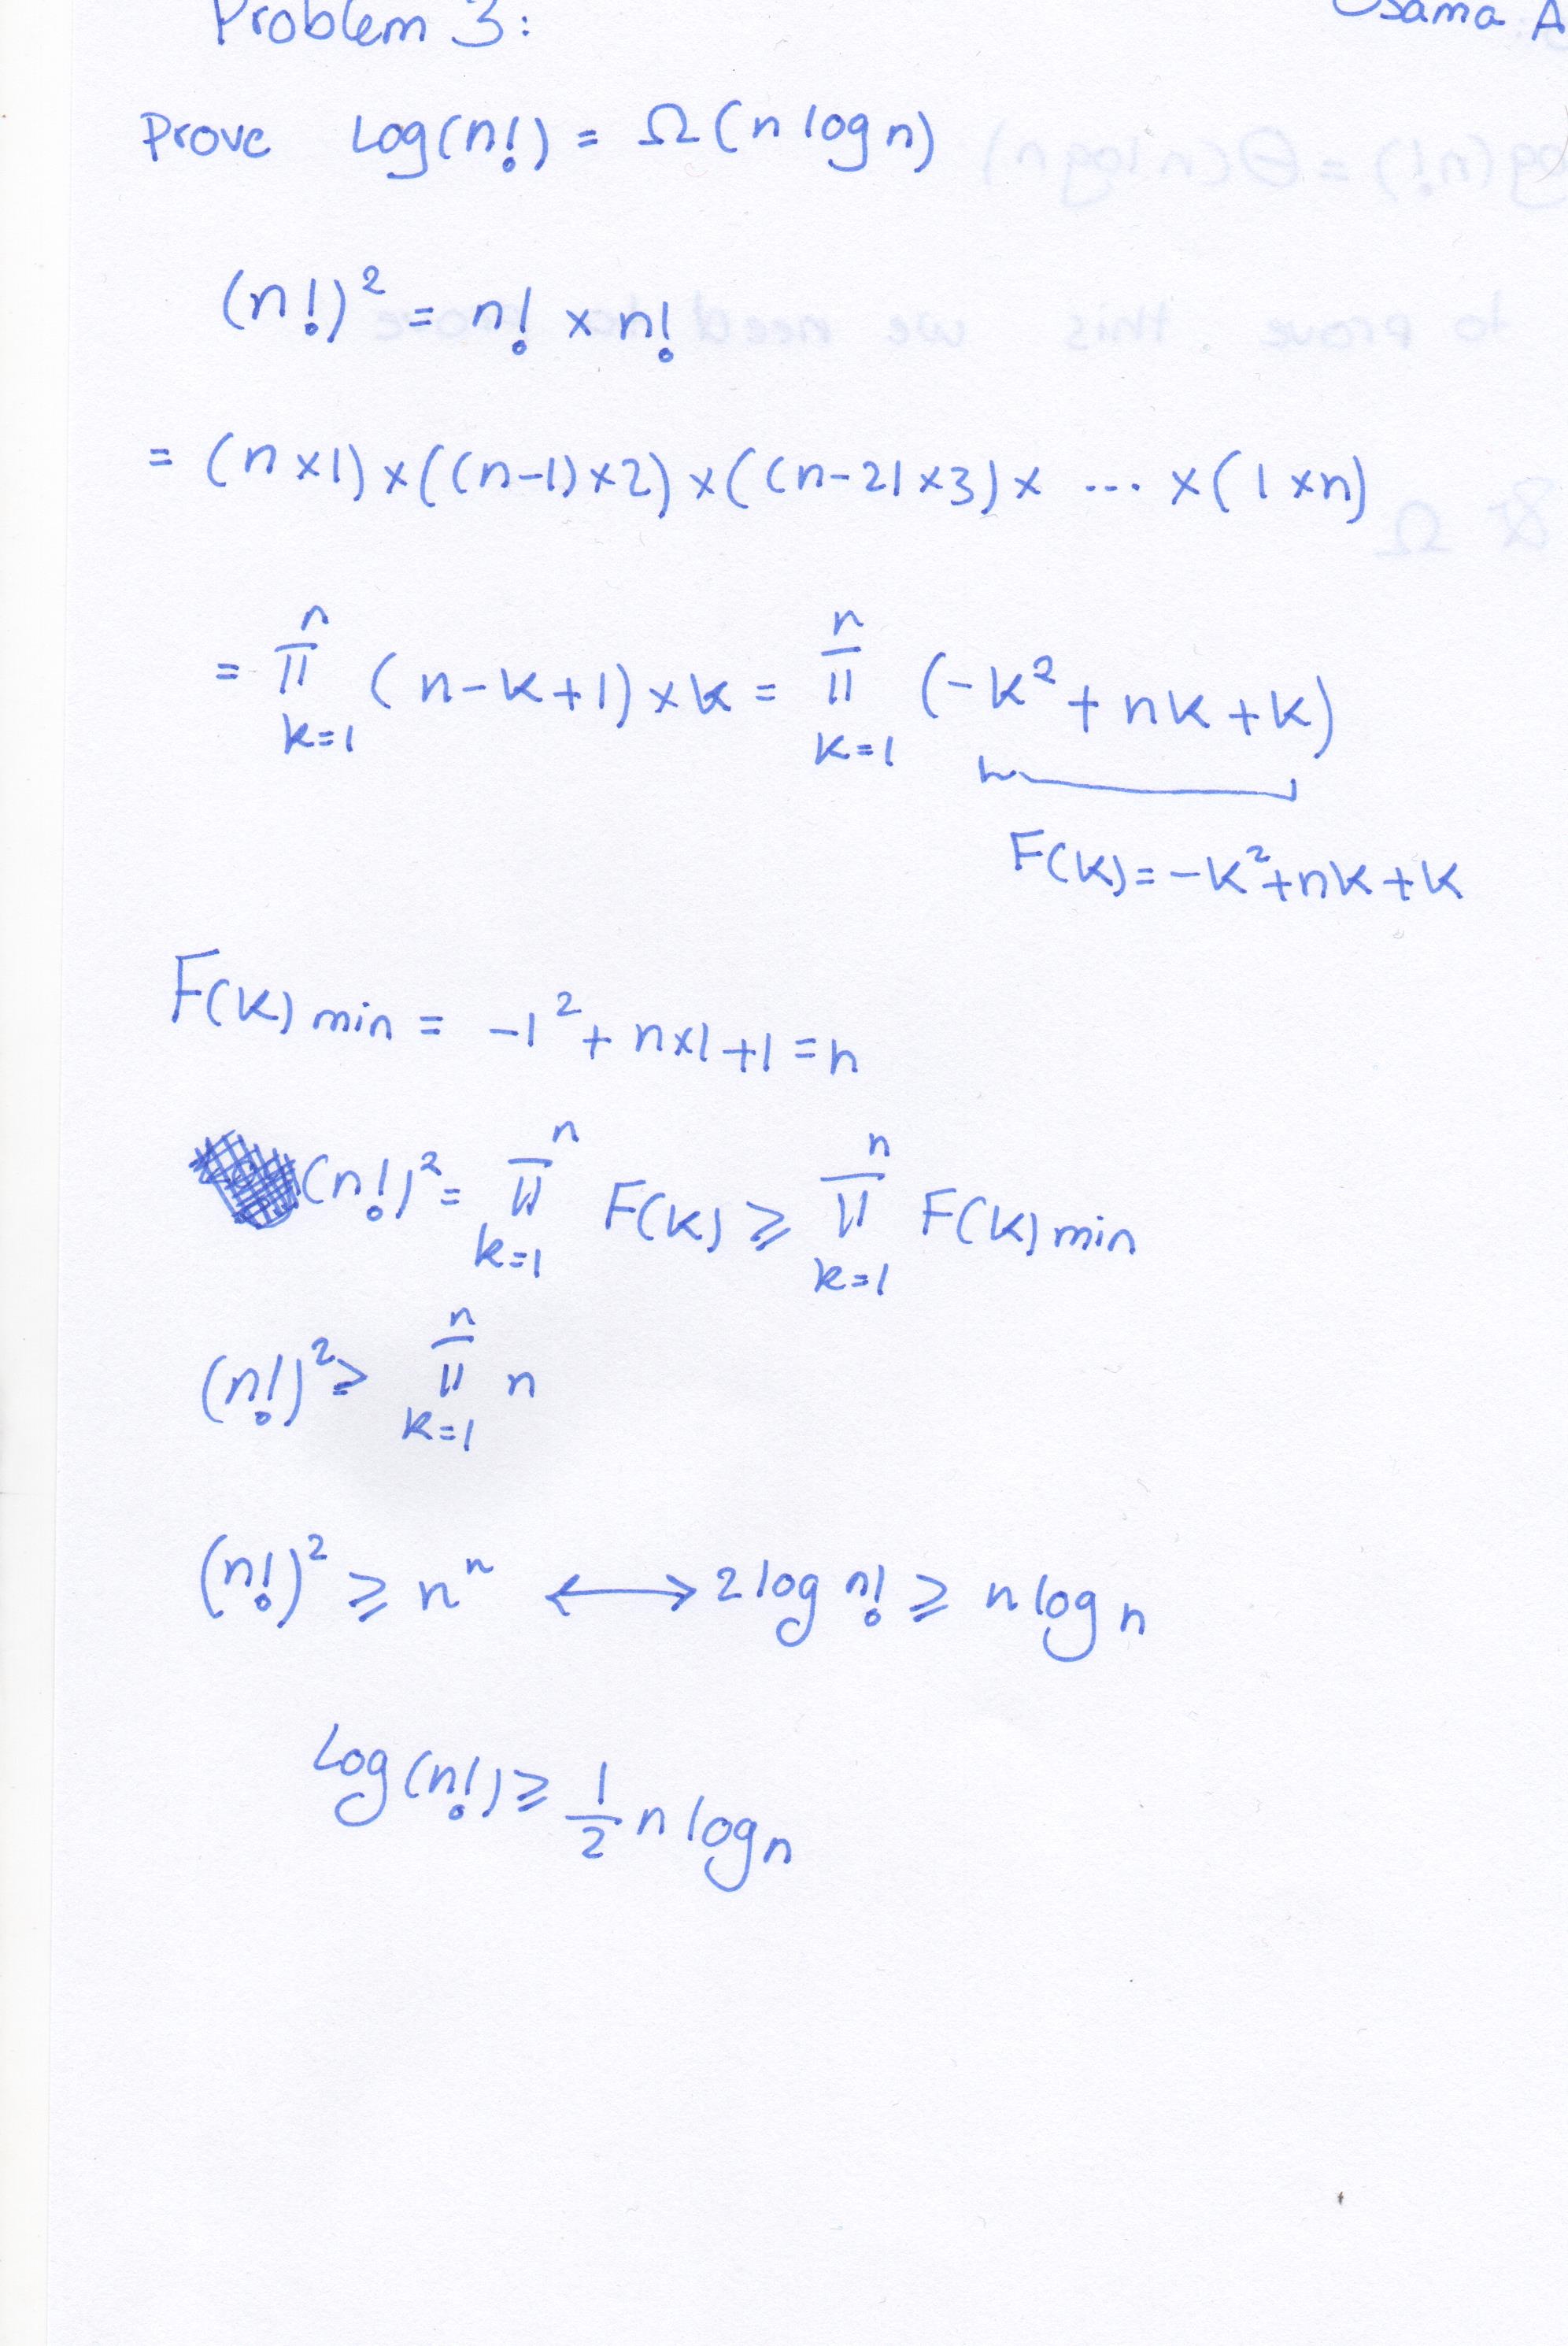 Problem 3:
Osama A
Prove Log(n!) = Ω(n log n)
(n!)² = n! × n!
= (n×1)×((n-1)×2)×((n-2)×3)× ... ×(1×n)
= ∏ₖ₌₁ⁿ (n-k+1)×k = ∏ₖ₌₁ⁿ (-k²+nk+k)
F(k)=-k²+nk+k
F(k) min = -1²+n×1+1=n
(n!)²= ∏ₖ₌₁ⁿ F(k) ⩾ ∏ₖ₌₁ⁿ F(k) min
(n!)² ⩾ ∏ₖ₌₁ⁿ n
(n!)² ⩾ nⁿ ⟷ 2 log n! ⩾ n log n
Log(n!) ⩾ 1/2 n log n